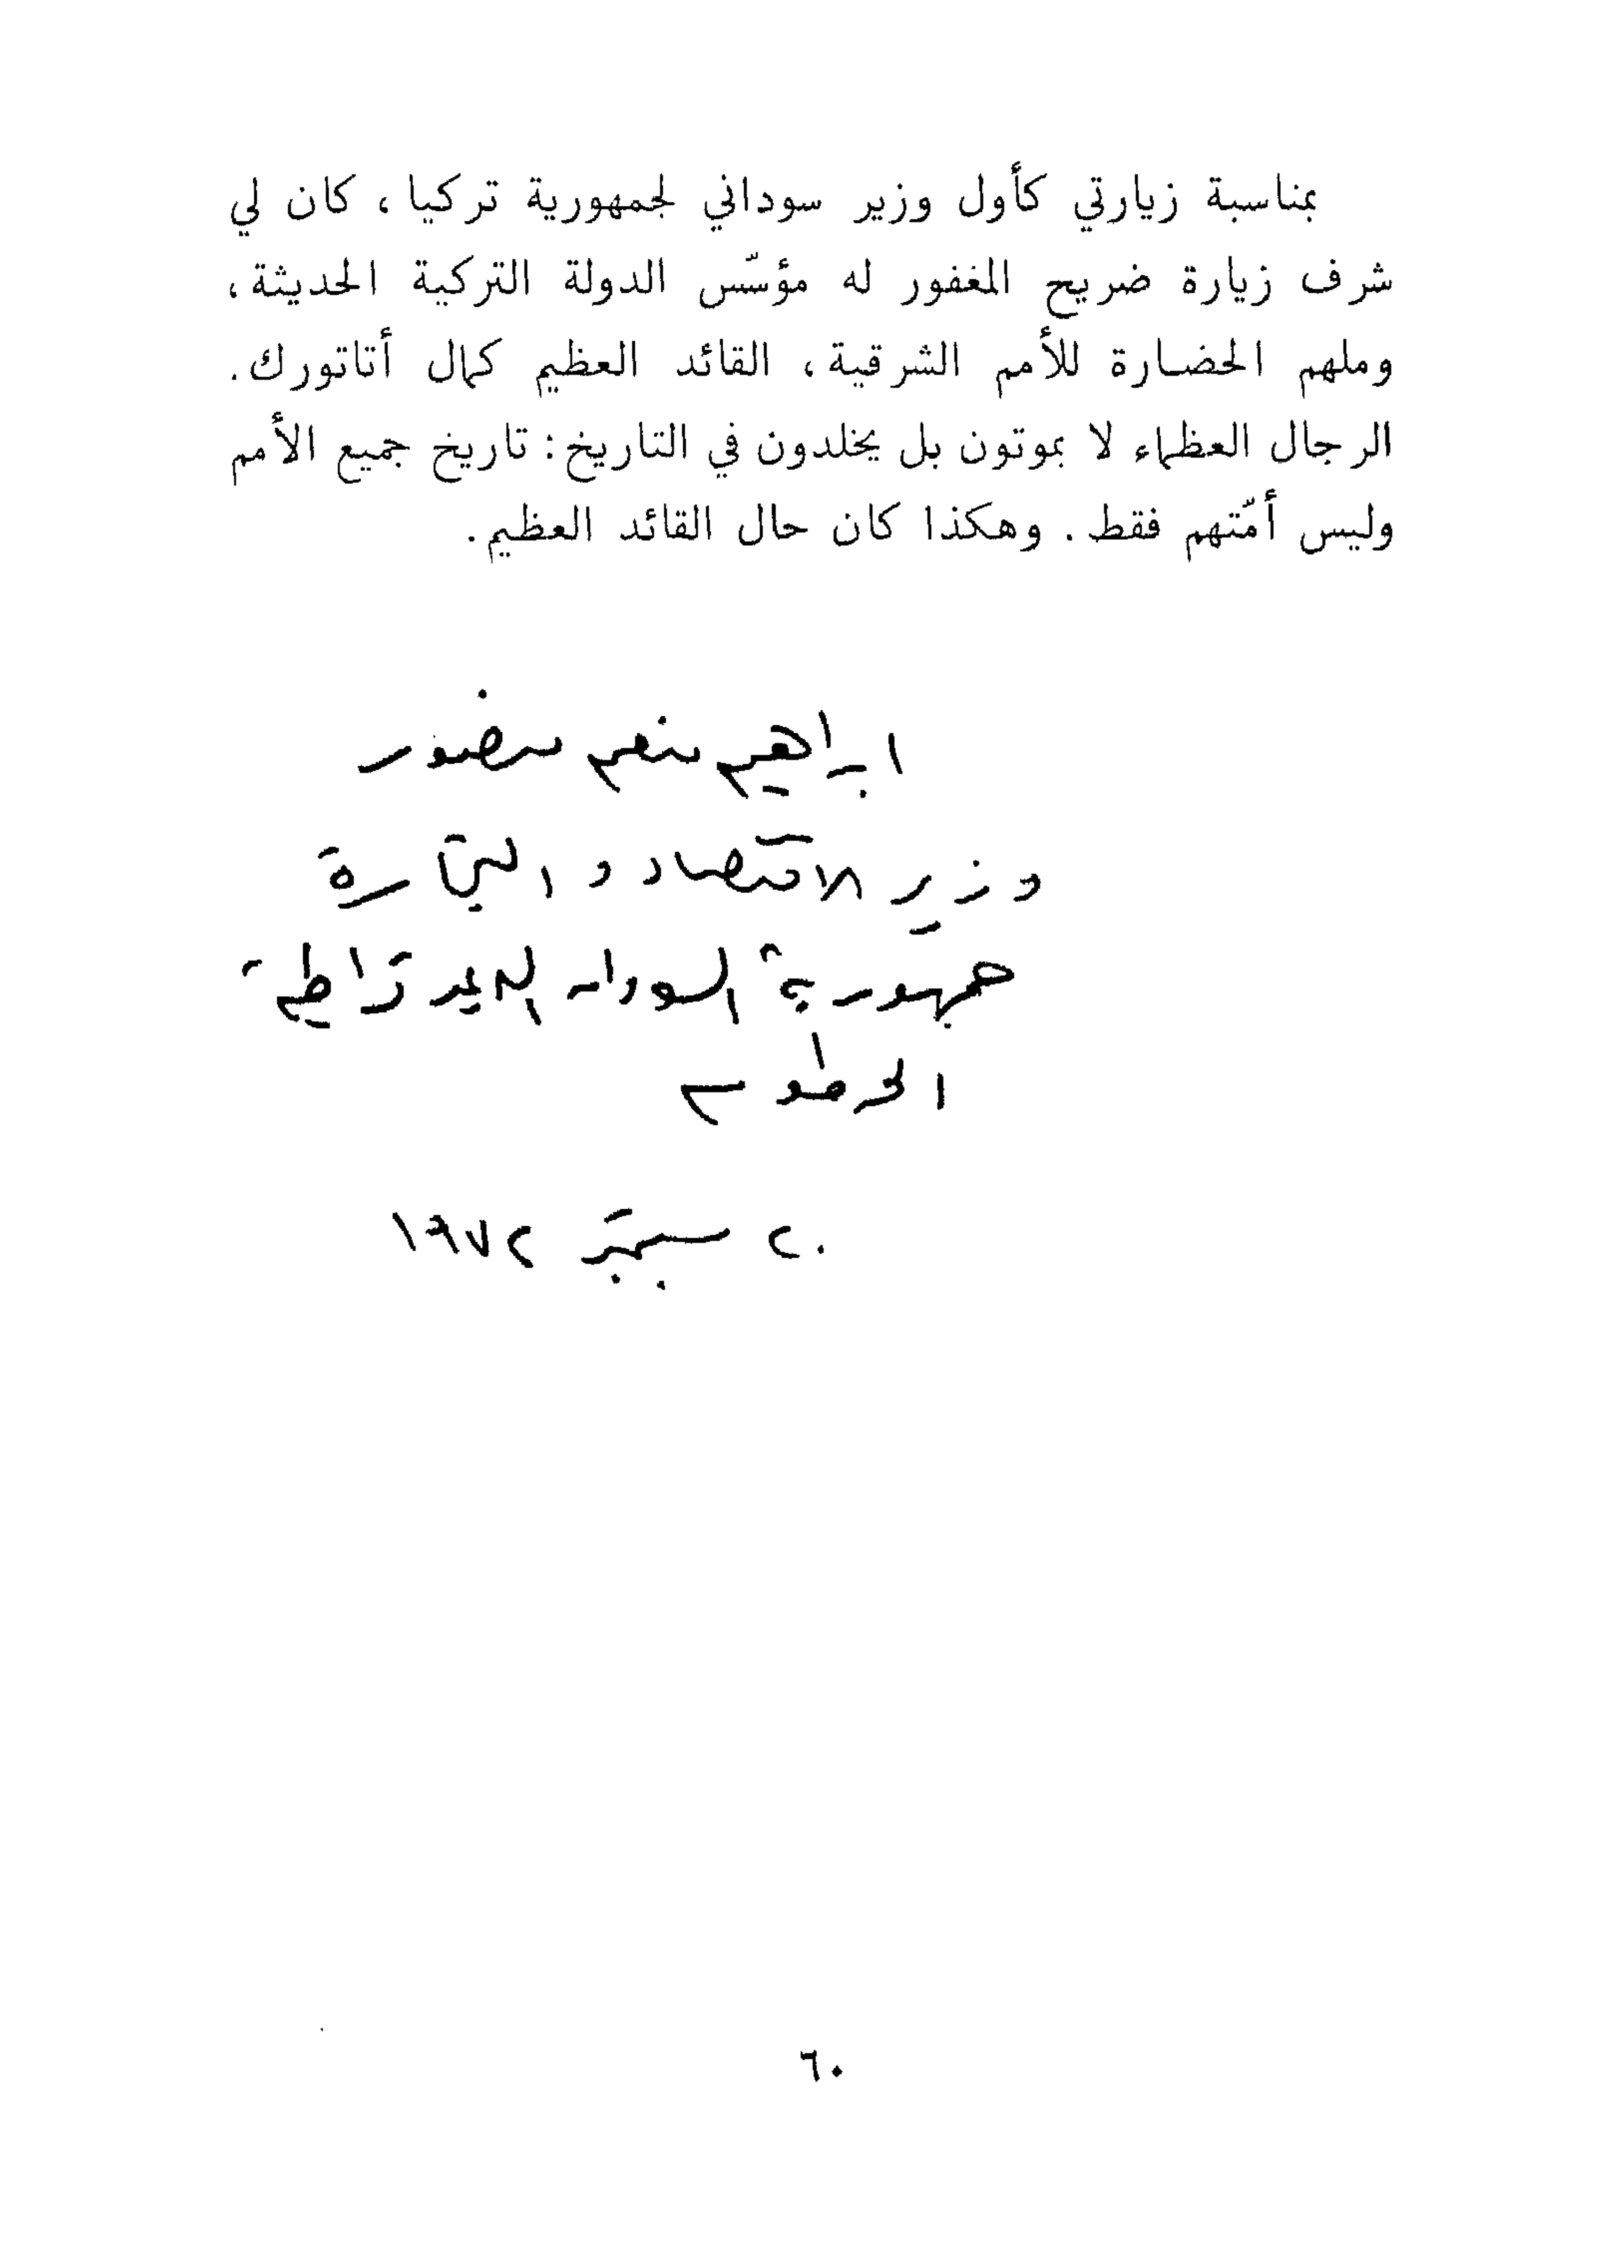 بمناسبة زيارتي كأول وزير سوداني لجمهورية تركيا، كان لي
شرف زيارة ضريح المغفور له مؤسّس الدولة التركية الحديثة،
وملهم الحضارة للأمم الشرقية، القائد العظيم كمال أتاتورك.
الرجال العظماء لا يموتون بل يخلدون في التاريخ: تاريخ جميع الأمم
وليس أمّتهم فقط. وهكذا كان حال القائد العظيم.
ابراهيم منعم منصور
وزير الاقتصاد و التجارة
جمهورية السودان الديمقراطية
الخرطوم
٢٠ سبتمبر ١٩٧٢
٦٠